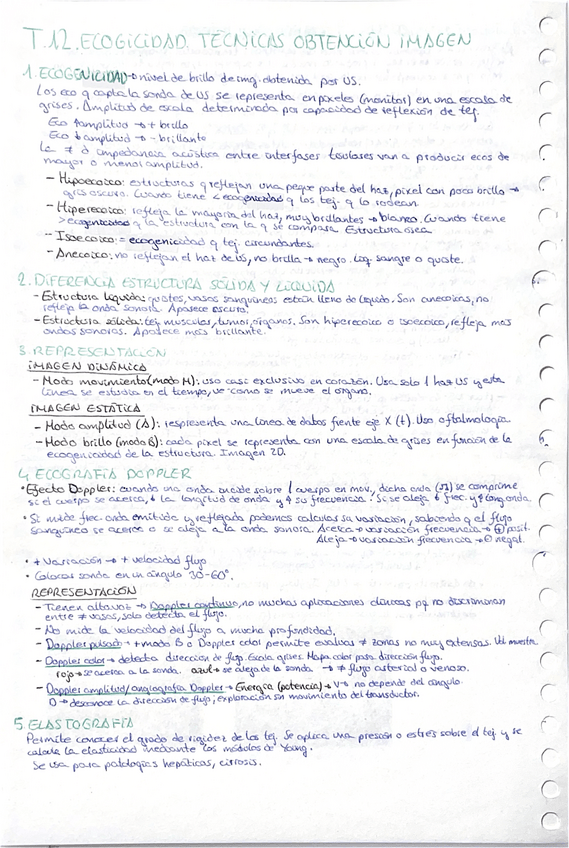 T.12. ECOGICIDAD. TÉCNICAS OBTENCIÓN IMAGEN
1. ECOGENICIDAD → nivel de brillo de img. obtenida por US.
Los eco q capta la sonda de US se representa en pixeles (monitor) en una escala de
grises. Amplitud de escala determinada por capacidad de reflexión de tej.
Eco ↑ amplitud → + brillo
Eco ↓ amplitud → - brillante
La ≠ d impedancia acústica entre interfases tisulares van a producir ecos de
mayor o menor amplitud.
- Hipoecoico: estructuras q reflejan una peque parte del haz, pixel con poco brillo →
gris oscuro. Cuando tiene < ecogenicidad q los tej. q lo rodean.
- Hiperecoico: refleja la mayoría del haz, muy brillantes → blanco. Cuando tiene
> ecogenicidad q la estructura con la q se compara. Estructura ósea.
- Isoecoico: = ecogenicidad q tej. circundantes.
- Anecoico: no reflejan el haz de US, no brilla → negro. Liq. sangre o quiste.
2. DIFERENCIA ESTRUCTURA SÓLIDA Y LÍQUIDA
- Estructura líquida: quistes, vasos sanguíneos están lleno de líquido. Son anecoicas, no
refleja la onda sonora. Aparece oscura.
- Estructura sólida: tej. musculos, tumor, órganos. Son hiperecoico o isoecoico, refleja más
ondas sonoras. Aparece más brillante.
3. REPRESENTACIÓN
IMAGEN DINÁMICA
- Modo movimiento (modo M): uso casi exclusivo en corazón. Usa solo 1 haz US y esta
línea se estudia en el tiempo, ve como se mueve el órgano.
IMAGEN ESTÁTICA
- Modo amplitud (A): representa una línea de datos frente eje X (t). Uso oftalmología
- Modo brillo (modo B): cada pixel se representa con una escala de grises en función de la
ecogenicidad de la estructura. Imagen 2D.
4. ECOGRAFÍA DOPPLER
• Efecto Doppler: cuando una onda incide sobre 1 cuerpo en mov, dicha onda se comprime
si el cuerpo se acerca, ↓ la longitud de onda y ↑ su frecuencia. Si se aleja ↓ frec. y ↑ long. onda.
• Si mide frec. onda emitida y reflejada podemos calcular su variación, sabiendo q el flujo
sanguíneo se acerca o se aleja a la onda sonora. Acerca → variación frecuencia → ⊕ posit.
Aleja → variación frecuencia → ⊖ negat.
• + Variación → + velocidad flujo
• Colocar sonda en un ángulo 30-60°.
REPRESENTACIÓN
- Tienen altavoz → Doppler continuo, no muchas aplicaciones clínicas pq no discriminan
entre ≠ vasos, solo detecta el flujo.
- No mide la velocidad del flujo a mucha profundidad.
- Doppler pulsado → + modo B o Doppler color permite evaluar ≠ zonas no muy extensas. Vol. muestra
- Doppler color → detecta dirección de flujo. Escala grises. Mapa color para dirección flujo.
rojo → se acerca a la sonda. azul → se aleja de la sonda → ≠ flujo arterial o venoso.
- Doppler amplitud/angiografía Doppler → Energía (potencia) → V → no depende del ángulo.
0 → desconoce la dirección de flujo; exploración sin movimiento del transductor.
5. ELASTOGRAFÍA
Permite conocer el grado de rigidez de los tej. Se aplica una presión o estrés sobre el tej y se
calcula la elasticidad mediante los módulos de Young.
Se usa para patologías hepáticas, cirrosis.